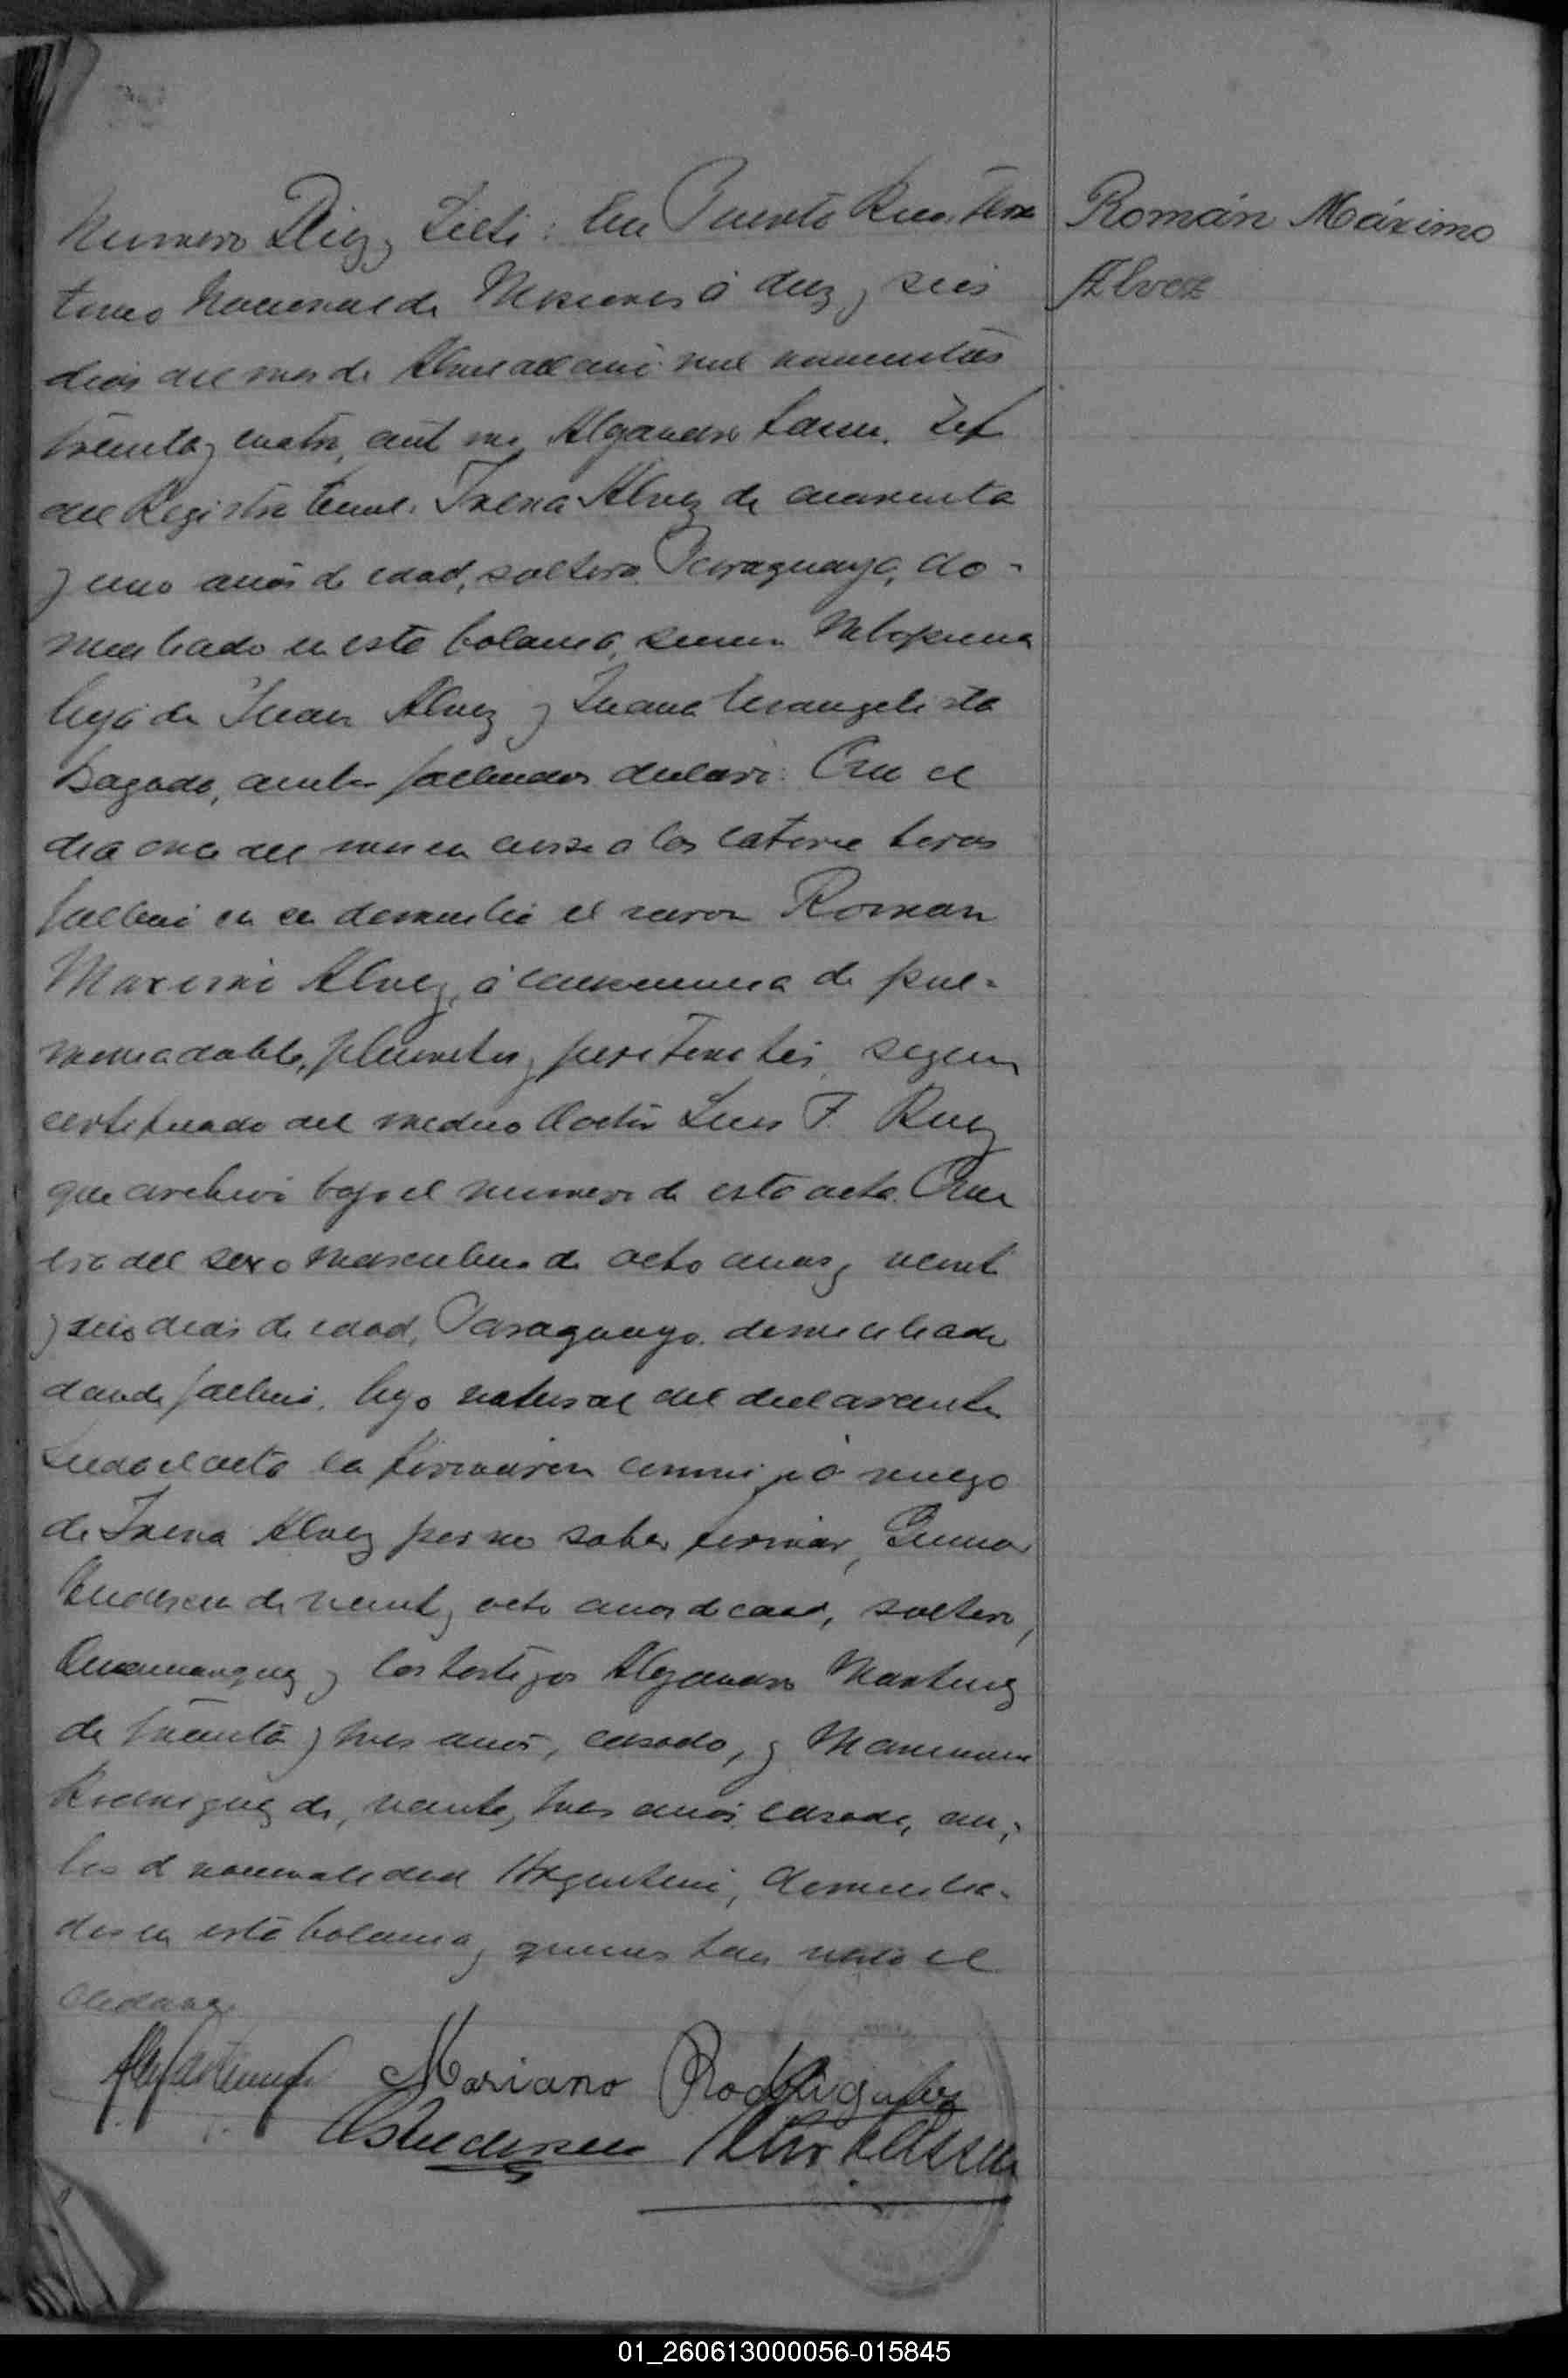 Numero Diez y Siete: En Puerto Rico, Terri
torio Nacional de Misiones á diez y seis
dias del mes de Abril del año mil novecientos
treinta y cuatro, ante mi, Alejandro Jefe
del Registro Civil: Alvez de cuarenta
y uno años de edad, soltera, Paraguaya, do-
miciliado en esta Colonia,
hija de Juan Alvez y Juana Evangelista
ambos fallecidos declaró: Que el
dia once del mes en curso a las catorce horas
falleció en su domicilio el varon Roman
Maximo Alvez, á consecuencia de pul-
monia doble, pleuritis y según
certificado del medico Doctor Luis F. Ruiz
que archivo bajo el numero de esta acta. Que
era del sexo masculino de ocho años y veinte
y seis dias de edad, Paraguayo, domiciliado
donde falleció, hijo natural del declarante
Leida el acta la firmaron conmigo á ruego
de Alvez por no saber firmar,
de veinte y ocho años de edad, soltero,
y los testigos Alejandro Martinez
de treinta y tres años, casado, y Mariano
Rodriguez de, veinte y tres años, casado, am-
bos de nacionalidad Argentina, domicilia-
dos en esta Colonia y quienes han visto el
cadaver
Mariano Rodriguez
Román Máximo
Alvez
01_260613000056-015845